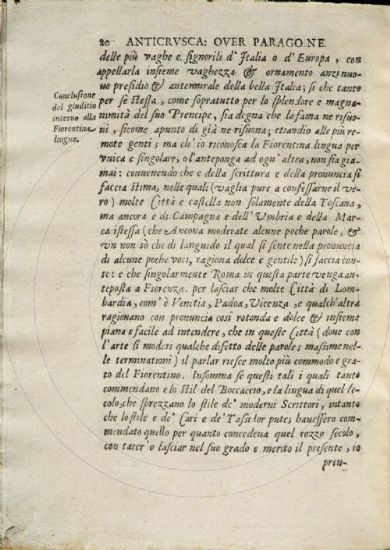 80 ANTICRVSCA: OVER PARAGONE
delle più vaghe e signorili d' Italia o d' Europa, con
appellarla insieme vaghezza & ornamento anzi nuo-
uo presidio & antemurale della bella Italia; si che tanto
per se stessa, come sopratutto per lo splendore e magna-
nimità del suo Prencipe, sia degna che la fama ne risuo-
ni, sicome apunto di già ne risuona; etiandio alle più re-
mote genti; ma ch' io riconosca la Fiorentina lingua per
vnica e singolare, o l'anteponga ad ogn' altra, non sia gia-
mai: conuenendo che e della scrittura e della pronuncia si
faccia stima, nelle quali (vaglia pure a confessarne il ve-
ro) molte Città e castella non solamente della Toscana,
ma ancora e di Campagna e dell' Vmbria e della Mar-
ca istessa (che Ancona moderate alcune poche parole, &
vn non sò che di languido il qual si sente nella pronuncia
di alcune poche voci, ragiona dolce e gentile) si faccia con-
to: e che singolarmente Roma in questa parte venga an-
teposta a Fiorenza. per lasciar che molte Città di Lom-
bardia, com' è Venetia, Padoa, Vicenza, e qualch' altra
ragionano con pronuncia così rotonda e dolce & insieme
piana e facile ad intendere, che in queste Città (doue con
l'arte si moderi qualche difetto delle parole; massime nel-
le terminationi) il parlar riesce molto più commodo e gra-
to del Fiorentino. Insomma se questi tali i quali tanto
commendano e lo stil del Boccaccio, e la lingua di quel se-
colo, che sprezzano lo stile de' moderni Scrittori, intanto
che lo stile e de' Cari e de' Tassi lor pute; hauessero com-
mendato quello per quanto concedeua quel rozzo secolo,
con tacer o lasciar nel suo grado e merito il presente, io
pren-
Conclusione
del giuditio
intorno alla
Fiorentina
lingua.